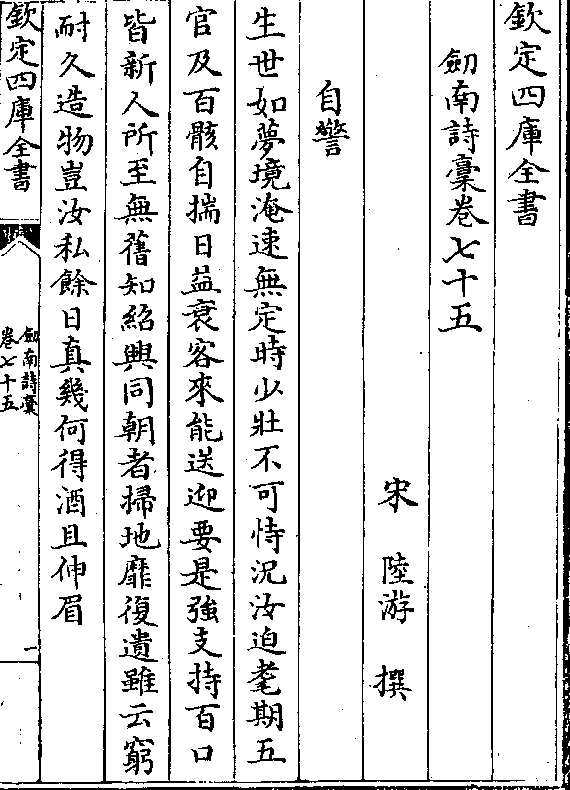 欽定四庫全書
劒南詩稾卷七十五
宋 陸游 撰
自警
生世如夢境淹速無定時少壯不可恃況汝迫耄期五
官及百骸自揣日益衰客來能送迎要是強支持百口
皆新人所至無舊知紹興同朝者掃地靡復遺雖云窮
耐久造物豈汝私餘日真幾何得酒且伸眉
欽定四庫全書
劒南詩稾
卷七十五
一